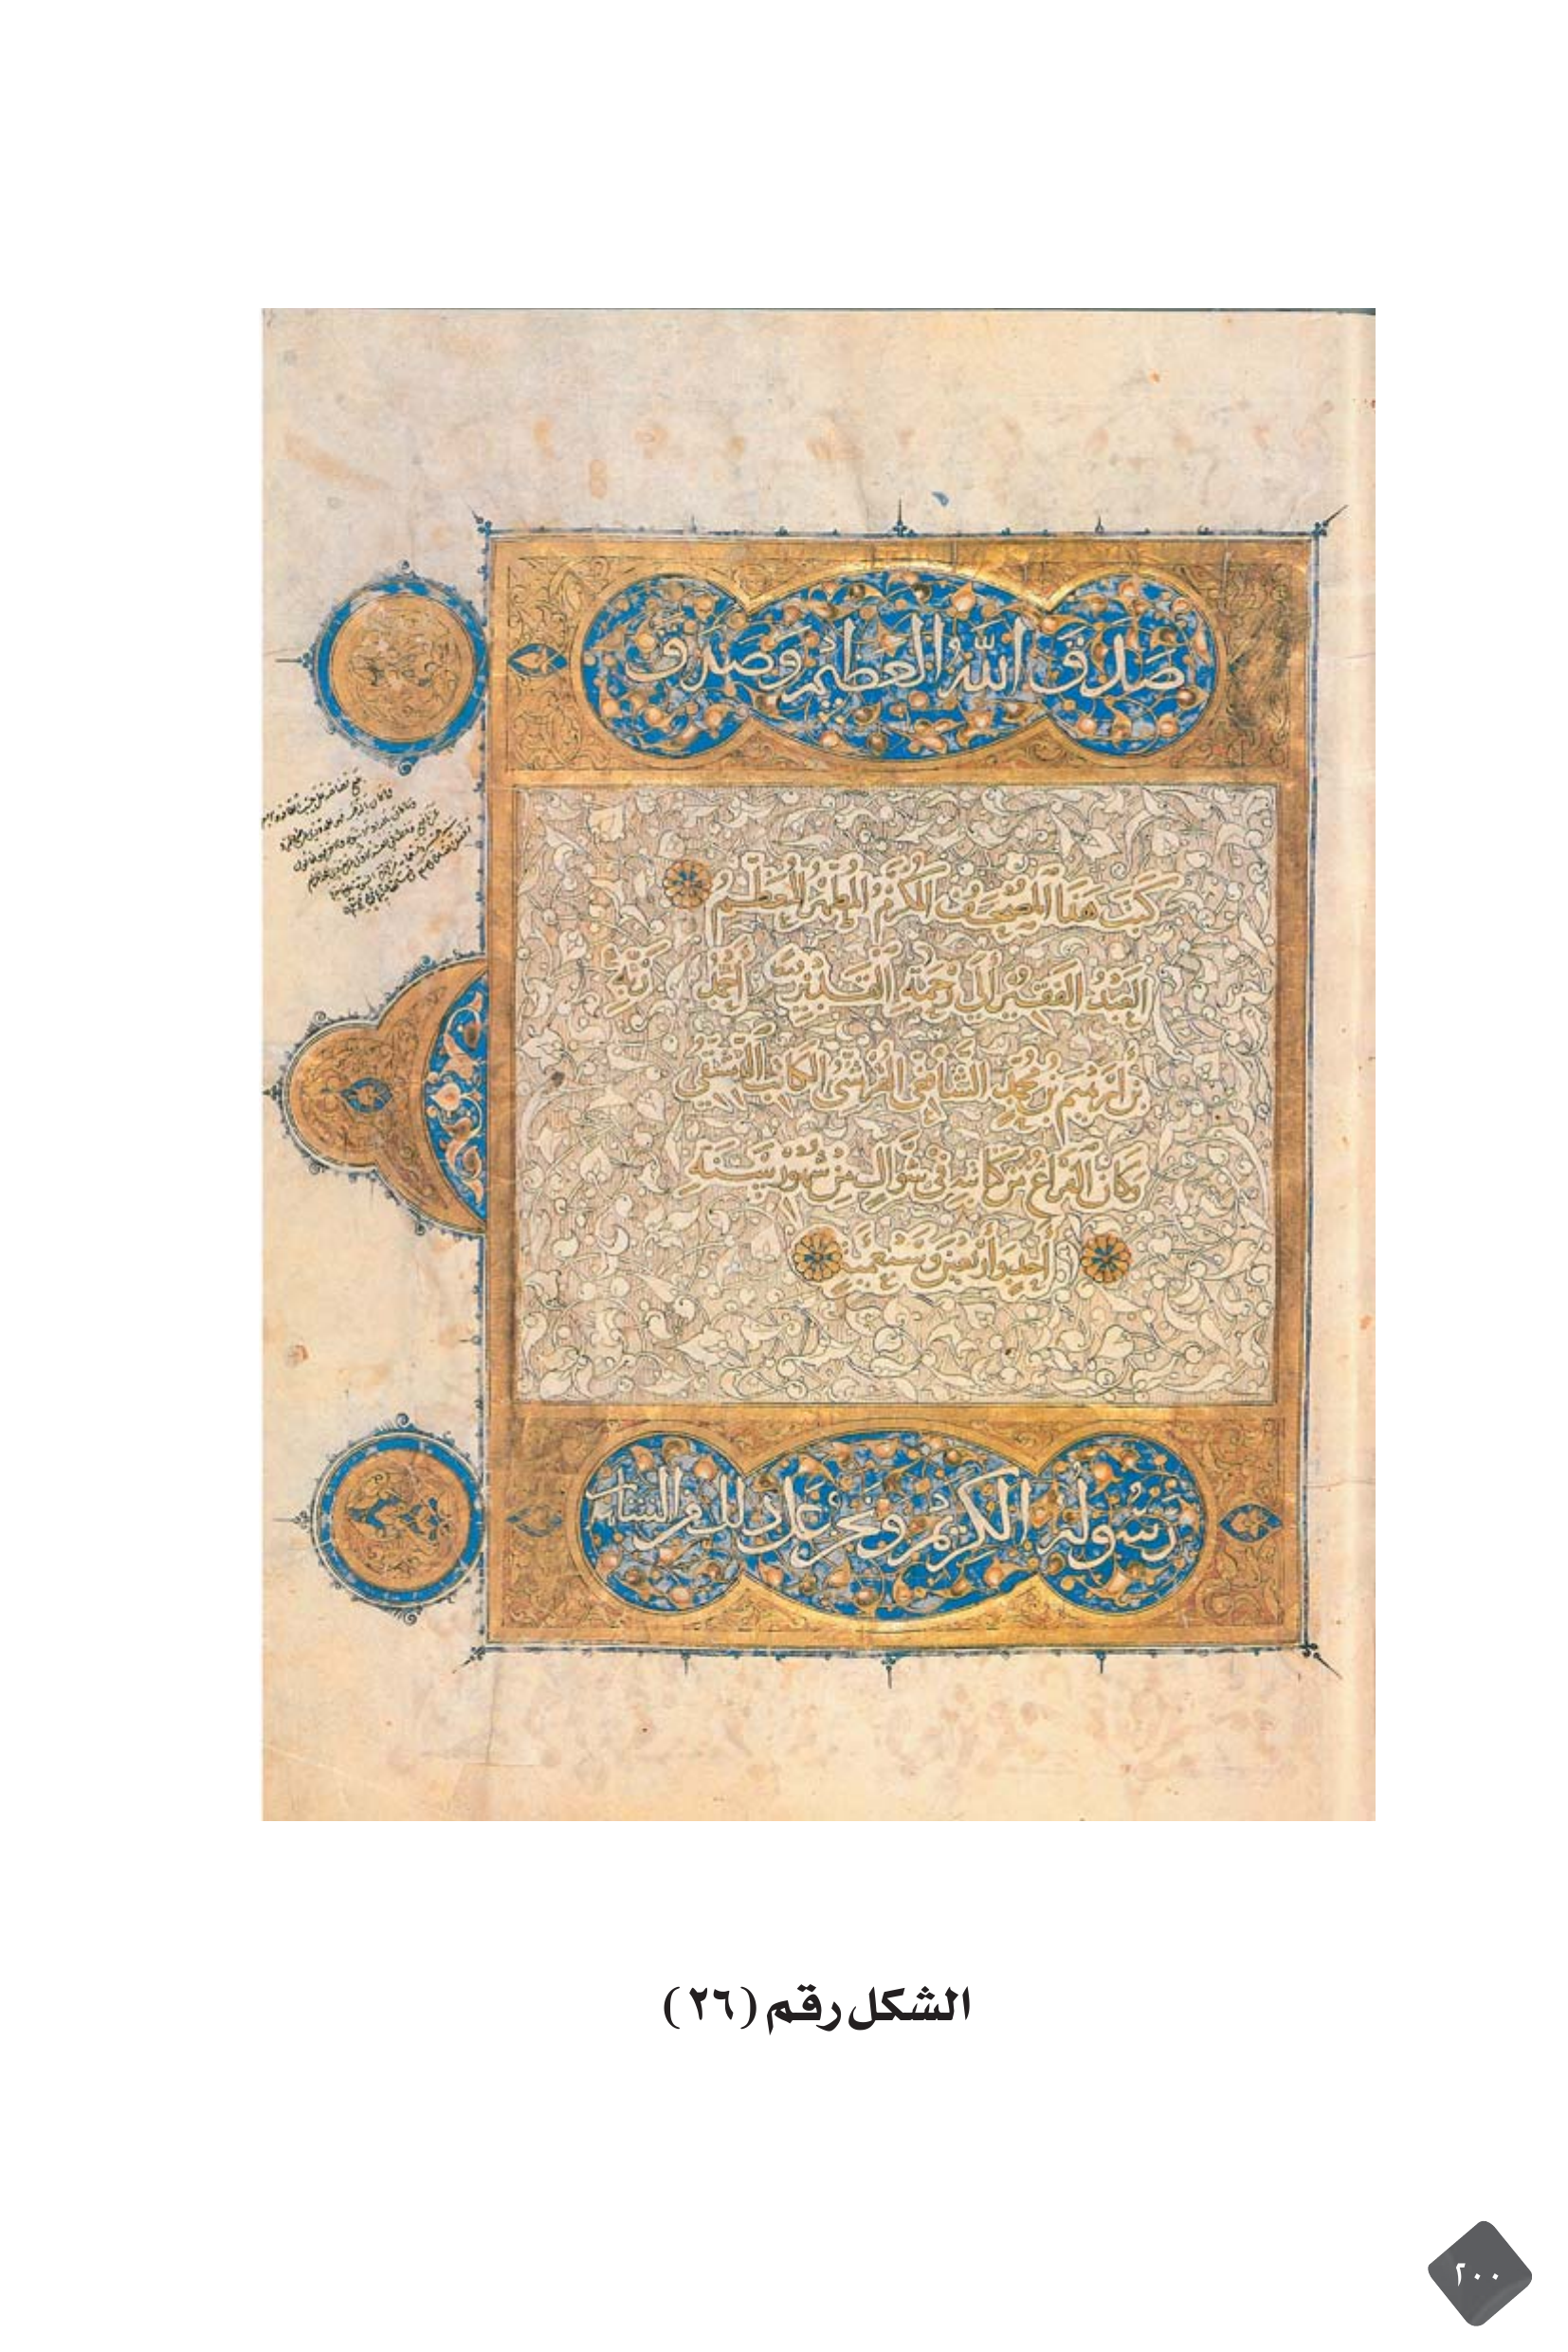 صَدَقَ اللهُ العَظيمُ وَصَدَقَ
كتبَ هَذا المُصْحَفَ المكرَّمَ المُطَهَّرَ المُعَظَّمَ
العَبْدُ الفَقيرُ إلى رَحْمَةِ القَديرِ أَحْمَدُ رَبِّهِ
بْنُ إبرهيم بن محمد الشافعي القرشي الكاتب الدمشقي
وكان الفراغ من كتابته في شوال من شهور سنة
أحد وأربعين وسبعمية
رَسُولهُ الكَريمُ ونحن على ذلك من الشاهد
الشكل رقم (٢٦)
٢٠٠